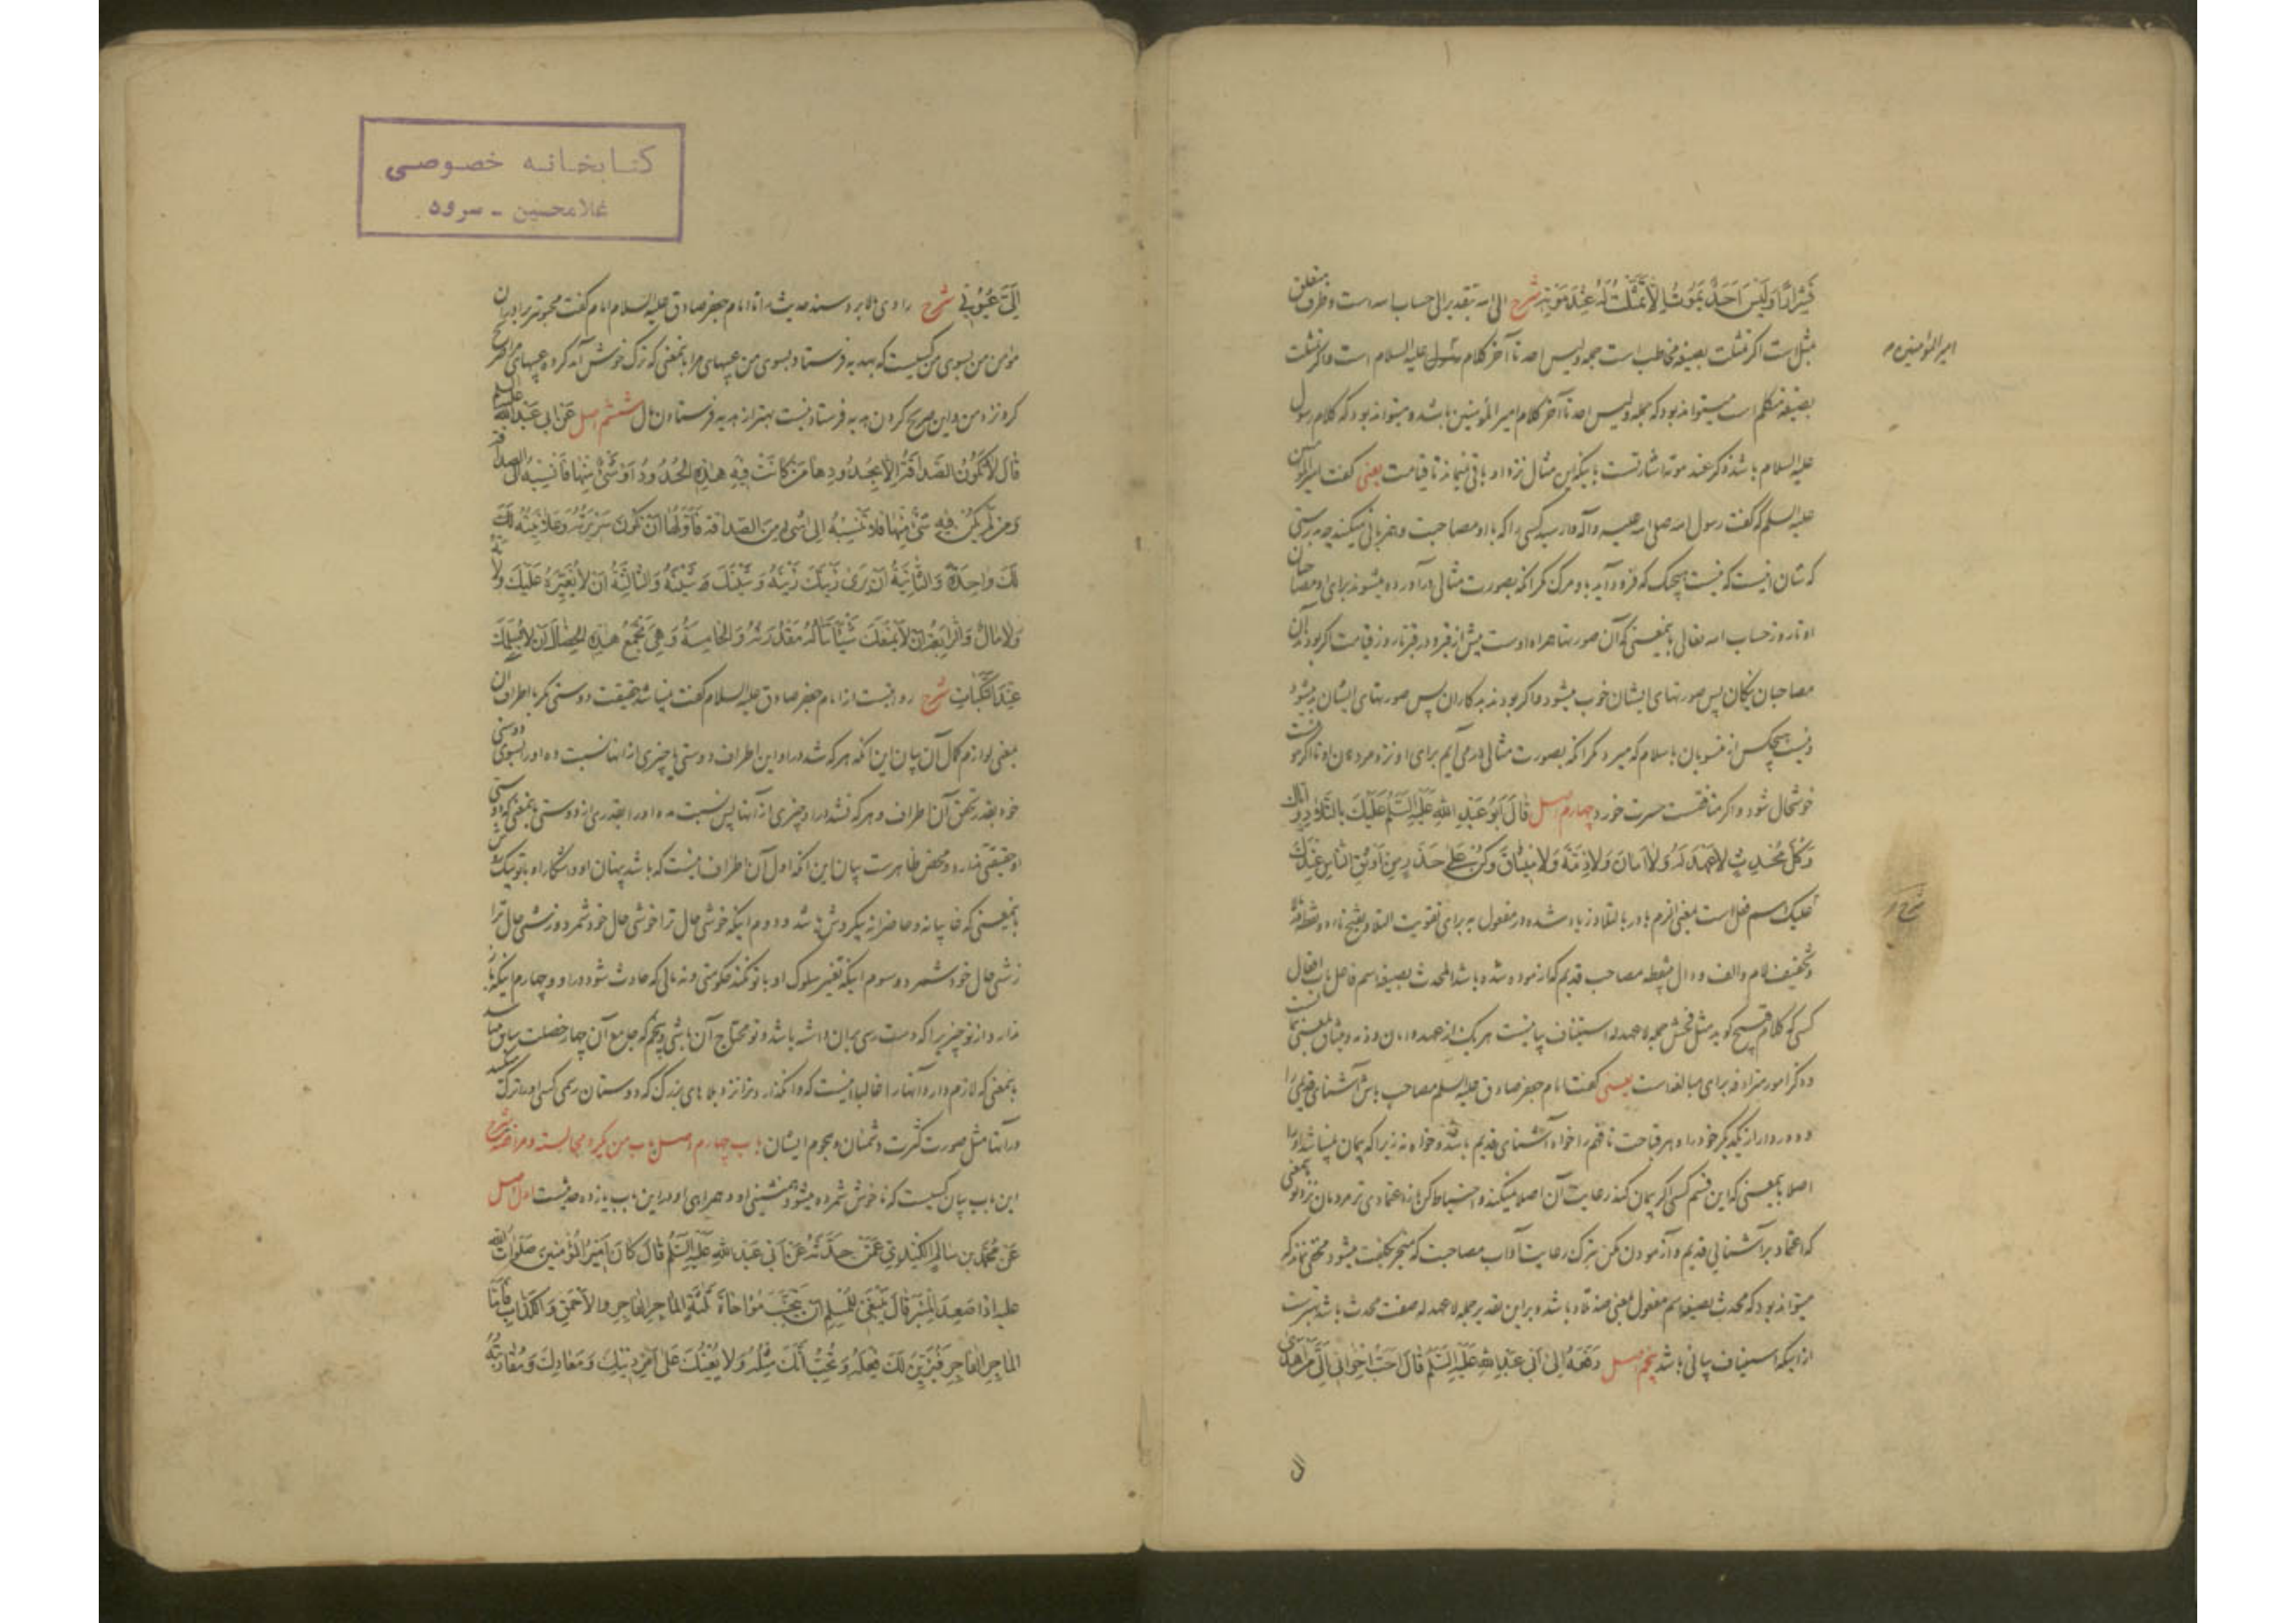 فَشِرَارًا وَلَيْسَ اَحَدٌ يَمُوتُ اِلَّا تَمَثَّلْتُ لَهُ عِنْدَ مَوْتِهِ شرح الی الله بتقدیر الی حساب الله است و ظرف متعلق
مثلت است اگر مثلت بصیغه مخاطب است جمله ولیس احد تا آخر کلام رسول علیه السلام است و اگر مثلت
امیر المؤمنین م
بصیغه متکلم است میتواند بود که جمله ولیس احد تا آخر کلام امیر المؤمنین باشد و میتواند بود که کلام رسول
علیه السلام باشد ذکر عند موته اشارتست باینکه این مثال نزد او باقی میماند تا قیامت یعنی گفت امیر المؤمنین
علیه السلم که گفت رسول الله صلی الله علیه وآله وارسید کسی را که با او مصاحبت و همزبانی میکنید چه بدرستی
که شان اینست که نیست هیچیک که فرود آید باو مرگ مگر آنکه بصورت مثالی درآورده میشوند برای او مصاحبان
او تا روز حساب الله تعالی بمعنی که آن صورتها همراه اوست پیش از قبر و در قبر تا روز قیامت اگر بودند آن
مصاحبان نیکان پس صورتهای ایشان خوب میشود و اگر بودند بدکاران پس صورتهای ایشان بد میشود
و نیست هیچکس از منسوبان باسلام که میرد مگر آنکه بصورت مثالی درمی آیم برای او نزد مردن او تا اگر
خوشحال شود و اگر منافقست حسرت خورد چهارم اصل قَالَ اَبُو عَبْدِ اللهِ عَلَيْهِ السَّلَمُ عَلَيْكَ بِالتِّلَادِ وَاِيَّاكَ
وَكُلَّ مُحْدِثٍ لَا عَهْدَ لَهُ وَلَا اَمَانَ وَلَا ذِمَّةَ وَلَا مِيثَاقَ وَكُنْ عَلَى حَذَرٍ مِنْ اَوْثَقِ النَّاسِ عِنْدَكَ
شرح
علیک اسم فعل است بمعنی الزم با در بالتلاد زیاد شده در مفعول به برای تقویت التلاد بفتح تاء دو نقطه
وتخفیف لام والف و دال بی‌نقطه مصاحب قدیم که آزموده شده باشد المحدث بصیغه اسم فاعل باب افعال
کسی که کلام قبیح گوید مثل فحش جمله لا عهد له استیناف بیانیست هر یک از عهد و امان و ذمه و میثاق بمعنی
و ذکر امور مترادفه برای مبالغه است یعنی گفت امام جعفر صادق علیه السلم مصاحب باش آشنای قدیمی را
و دور دار از یکدیگر خود را و هر قباحت تا فهم را خواه آشنای قدیم باشد و خواه نه زیرا که پیمان نمیباشد او را
اصلا بمعنی که این قسم کسی اگر پیمان کند رعایت آن اصلا نمیکند و احتیاط کن از اعتمادی تر مردمان نزد تو بمعنی
که اعتماد بر آشنایی قدیم و آزمودن مکن بترک رعایت آداب مصاحبت که منجر بکلفت میشود مخفی نماند که
میتواند بود که محدث بصیغه اسم مفعول بمعنی ضد تلاد باشد و براین تقدیر جمله لا عهد له صفت محدث باشد بهترست
از اینکه استیناف بیانی باشد پنجم اصل رَفَعَهُ اِلَى اَبِي عَبْدِ اللهِ عَلَيْهِ السَّلَمُ قَالَ اَحَبُّ اِخْوَانِي اِلَيَّ مَنْ اَهْدَى
ال
کتابخانه خصوصی
غلامحسین - سرود
اِلَيَّ عُيُوبِي شرح راوی بالا برد سند حدیث را تا امام جعفر صادق علیه السلام امام گفت محبوبتر برادران
مؤمن من بسوی من کسیست که بهدیه فرستاد بسوی من عیبهای مرا بمعنی که ترک خوش آمد کرده عیبهای مرا صریح
کرد نزد من و این صریح کردن هدیه فرستادنیست بهتر از هدیه فرستادن مال ششم اصل عَنْ اَبِي عَبْدِ اللهِ علیه السلم
قَالَ لَا تَكُونُ الصَّدَاقَةُ اِلَّا بِحُدُودِهَا فَمَنْ كَانَتْ فِيهِ هٰذِهِ الْحُدُودُ اَوْ شَيْءٌ مِنْهَا فَانْسِبْهُ اِلَى الصداقة
وَمَنْ لَمْ يَكُنْ فِيهِ شَيْءٌ مِنْهَا فَلَا تَنْسِبْهُ اِلَى شَيْءٍ مِنَ الصَّدَاقَةِ فَاَوَّلُهَا اَنْ تَكُونَ سَرِيرَتُهُ وَعَلَانِيَتُهُ لَكَ
لَكَ وَاحِدَةً وَالثَّانِيَةُ اَنْ يَرَى زَيْنَكَ زَيْنَهُ وَشَيْنَكَ شَيْنَهُ وَالثَّالِثَةُ اَنْ لَا تُغَيِّرَهُ عَلَيْكَ وِلَايَةٌ
وَلَا مَالٌ وَالرَّابِعَةُ اَنْ لَا يَمْنَعَكَ شَيْئًا تَنَالُهُ مَقْدُرَتُهُ وَالْخَامِسَةُ وَهِيَ تَجْمَعُ هٰذِهِ الْخِصَالَ اَنْ لَا يُسْلِمَكَ
عِنْدَ النَّكَبَاتِ شرح روایتست از امام جعفر صادق علیه السلام گفت نمیباشد حقیقت دوستی مگر باطراف آن
بمعنی لوازم کمال آن بیان این آنکه هر که شد در او این اطراف دوستی یا چیزی از آنها نسبت ده او را بسوی دوستی
خود بقدر تحقق آن اطراف و هر که نشد در او چیزی از آنها پس نسبت مده او را بقدری از دوستی بمعنی که دوستی
او حقیقتی ندارد و محض ظاهرست بیان این آنکه اول آن اطراف اینست که باشد پنهان او و آشکار او با تو یک
بمعنی که غایبانه و حاضرانه یکروش باشد و دوم اینکه خوشی حال ترا خوشی حال خود شمرد و زشتی حال ترا
زشتی حال خود شمرد و سوم اینکه تغییر سلوک او با تو نکند حکومتی و نه مالی که حادث شود در او و چهارم اینکه باز
ندارد از تو چیزی را که دست رسی بآن داشته باشد و تو محتاج آن باشی و پنجم که جامع آن چهار خصلت سابق میباشد
بمعنی که لازم دارد آنها را غالبا اینست که وانگذارد ترا نزد بلاهای بزرگ که دوستان رسمی کسی او را ترک
در آنها مثل صورت کثرت دشمنان و هجوم ایشان باب چهارم اصل باب من یکره مجالسته و مرافقته شرح
این باب بیان کسیست که ناخوش شمرده میشود همنشینی او و همراهی او در این باب یازده حدیثست اول اصل
عَنْ مُحَمَّدِ بْنِ سَالِمٍ الْكِنْدِيِّ عَمَّنْ حَدَّثَهُ عَنْ اَبِي عَبْدِ اللهِ عَلَيْهِ السَّلَمُ قَالَ كَانَ اَمِيرُ الْمُؤْمِنِينَ صَلَوَاتُ الله
علیه اِذَا صَعِدَ الْمِنْبَرَ قَالَ يَنْبَغِي لِلْمُسْلِمِ اَنْ يَجْتَنِبَ مُوَاخَاةَ ثَلَثَةٍ الْمَاجِنِ الْفَاجِرِ وَالْاَحْمَقِ وَالْكَذَّابِ فَاَمَّا
الْمَاجِنُ الْفَاجِرُ فَيُزَيِّنُ لَكَ فِعْلَهُ وَيُحِبُّ اَنَّكَ مِثْلُهُ وَلَا يُعِينُكَ عَلَى اَمْرِ دِينِكَ وَمَعَادِكَ وَمُقَارَبَتُهُ